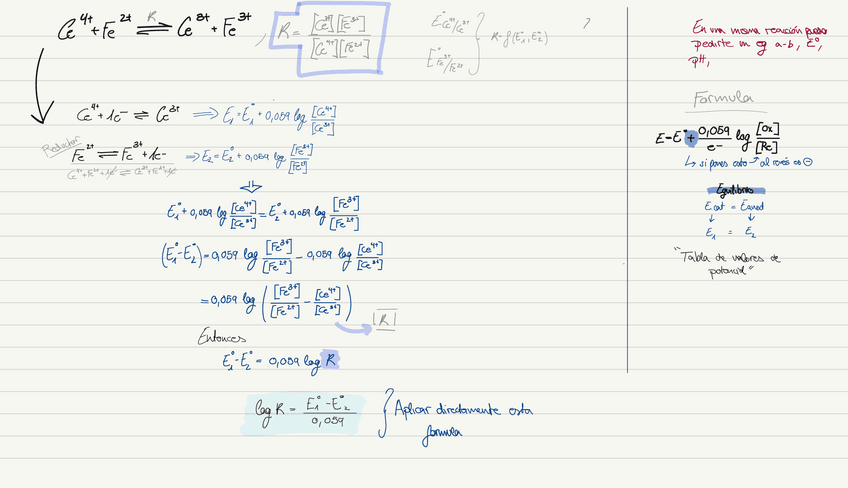 Ce⁴⁺ + Fe²⁺ ⇌ Ce³⁺ + Fe³⁺ , R = [Ce³⁺][Fe³⁺] / [Ce⁴⁺][Fe²⁺]
R
E°Ce⁴⁺/Ce³⁺
E°Fe³⁺/Fe²⁺ } R = f(E°₁, E°₂)
Ce⁴⁺ + 1e⁻ ⇌ Ce³⁺ ⇒ E₁ = E₁° + 0,059 log [Ce⁴⁺] / [Ce³⁺]
Reductor
Fe²⁺ ⇌ Fe³⁺ + 1e⁻ ⇒ E₂ = E₂° + 0,059 log [Fe³⁺] / [Fe²⁺]
Ce⁴⁺ + Fe²⁺ + 1e⁻ ⇌ Ce³⁺ + Fe³⁺ + 1e⁻
E₁° + 0,059 log [Ce⁴⁺] / [Ce³⁺] = E₂° + 0,059 log [Fe³⁺] / [Fe²⁺]
(E₁° - E₂°) = 0,059 log [Fe³⁺] / [Fe²⁺] - 0,059 log [Ce⁴⁺] / [Ce³⁺]
= 0,059 log ( [Fe³⁺] / [Fe²⁺] - [Ce⁴⁺] / [Ce³⁺] )
|R|
Entonces
E₁° - E₂° = 0,059 log R
log R = E₁° - E₂° / 0,059 } Aplicar directamente esta
formula
En una misma reacción
pedirte un eq a-b, E°,
pH,
Formula
E = E° + 0,059 / e⁻ log [Ox] / [Re]
↳ si pones esto → al revés es ⊖
Equilibrio
Ecat = Eanod
↓ ↓
E₁ = E₂
"Tabla de valores de
potencial"